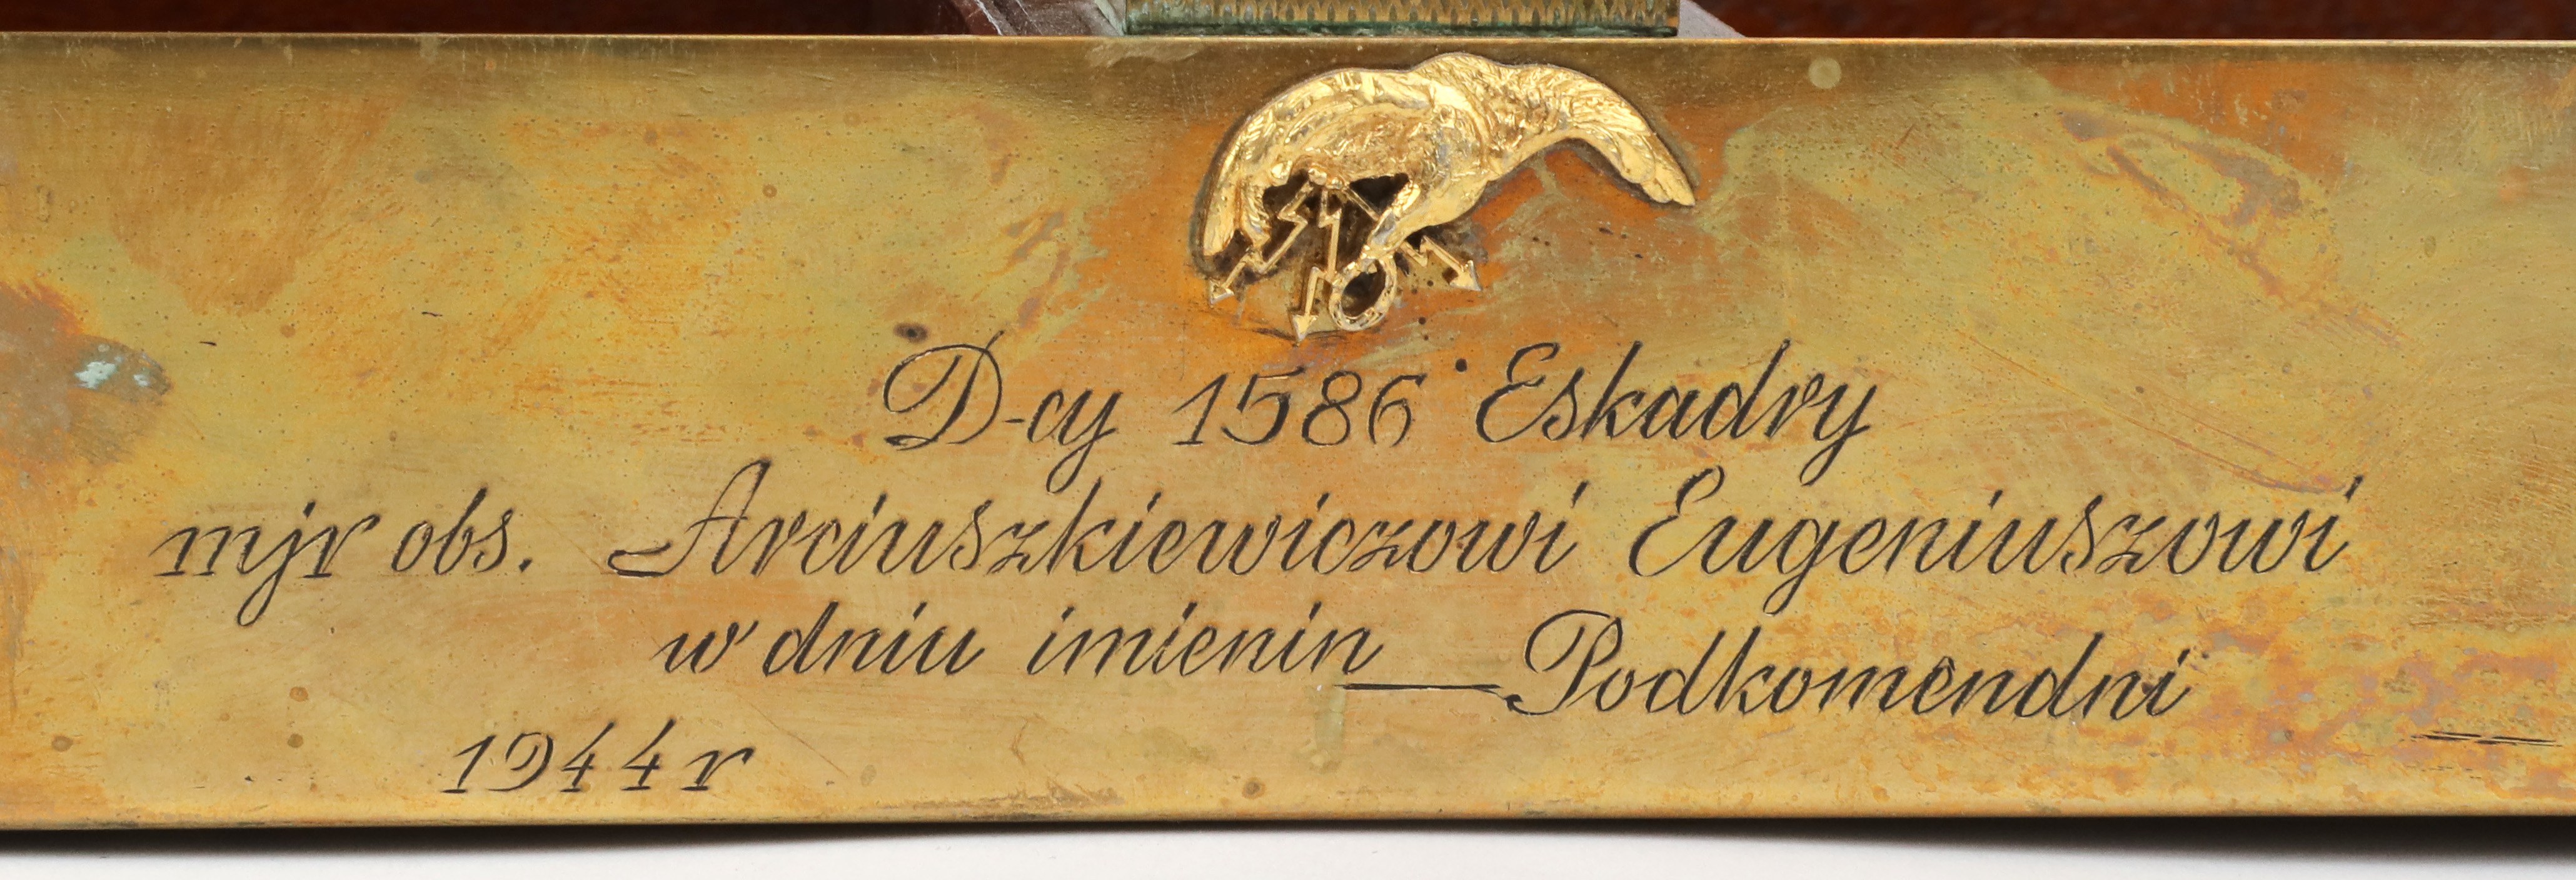 D-cy 1586 Eskadry
mjr obs. Arciuszkiewiczowi Eugeniuszowi
w dniu imienin — Podkomendni
1944 r